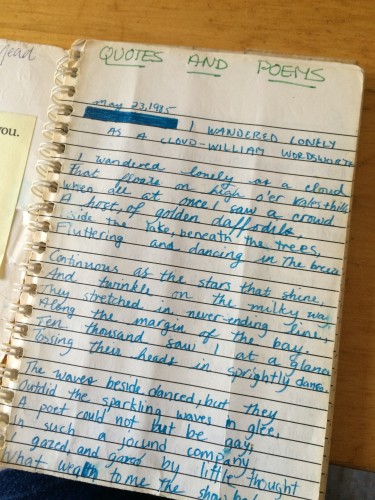 read
you.
QUOTES AND POEMS
May 23, 1985
I WANDERED LONELY
AS A CLOUD-WILLIAM WORDSWORTH
I wandered lonely as a cloud
That floats on high o'er vales + hills
When all at once I saw a crowd
A host, of golden daffodils,
Beside the lake, beneath the trees,
Fluttering and dancing in the breeze
Continuous as the stars that shine,
And twinkle on the milky way,
They stretched in never-ending line,
Along the margin of the bay.
Ten thousand saw I at a glance
Tossing their heads in sprightly dance.
The waves beside danced, but they
Outdid the sparkling waves in glee,
A poet could not but be gay,
In such a jocund company
I gazed, and gazed by little thought
What wealth to me the show